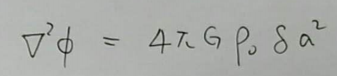 ∇²ϕ = 4πGρ₀δa²